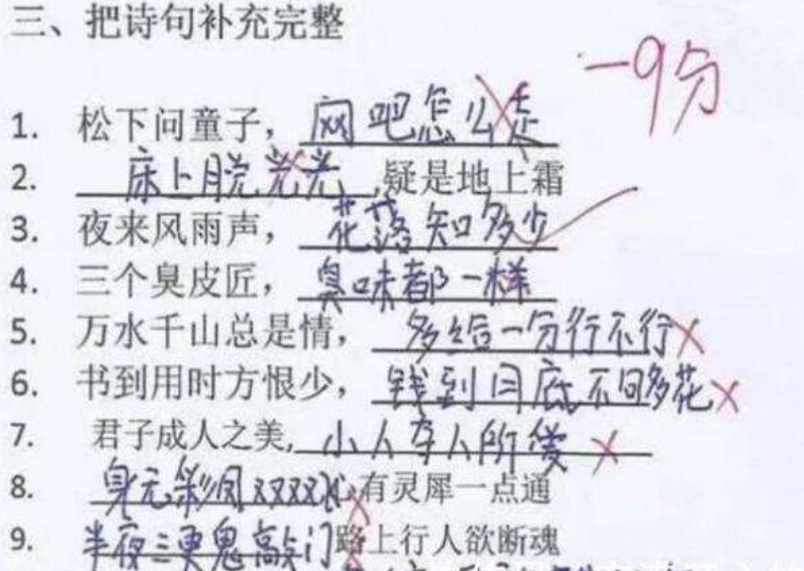 三、把诗句补充完整
-9分
1. 松下问童子，网吧怎么走
2. 床上脱光光,疑是地上霜
3. 夜来风雨声，花落知多少
4. 三个臭皮匠，臭味都一样
5. 万水千山总是情，多给一分行不行
6. 书到用时方恨少，钱到月底不回多花
7. 君子成人之美,小人夺人所爱
8. 身无彩凤双双飞,有灵犀一点通
9. 半夜三更鬼敲门路上行人欲断魂